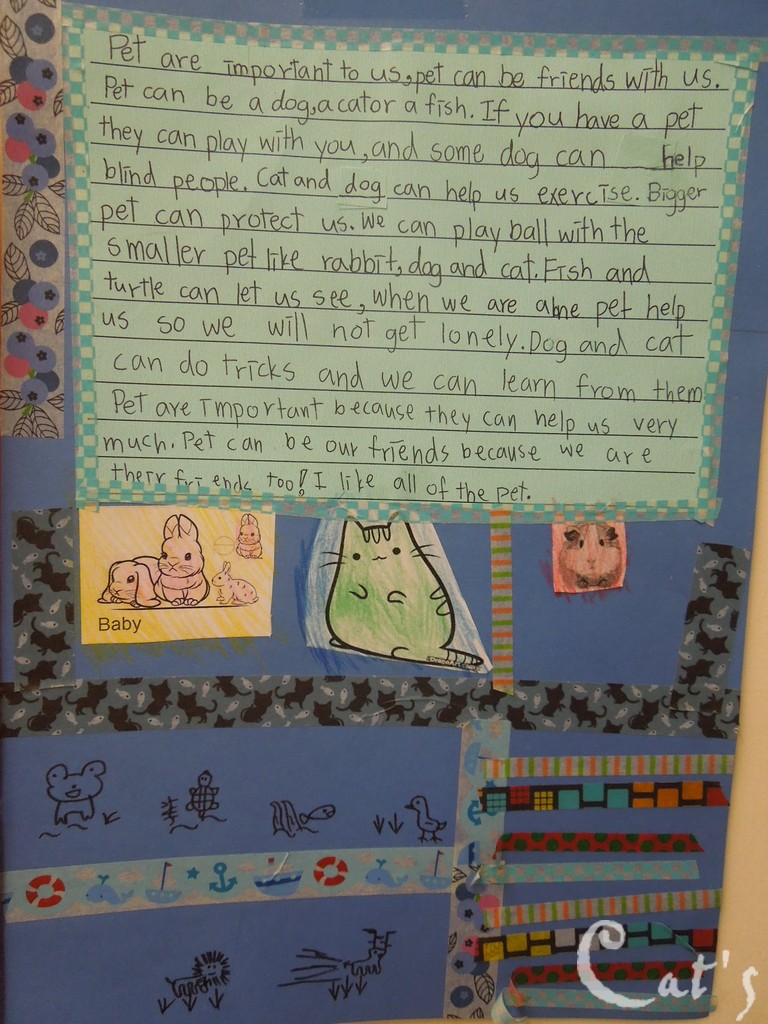 Pet are important to us, pet can be friends with us.
Pet can be a dog, a cat or a fish. If you have a pet
they can play with you, and some dog can help
blind people. Cat and dog can help us exercise. Bigger
pet can protect us. We can play ball with the
smaller pet like rabbit, dog and cat. Fish and
turtle can let us see, when we are alone pet help
us so we will not get lonely. Dog and cat
can do tricks and we can learn from them
Pet are important because they can help us very
much. Pet can be our friends because we are
their friends too! I like all of the pet.
Baby
Cat's